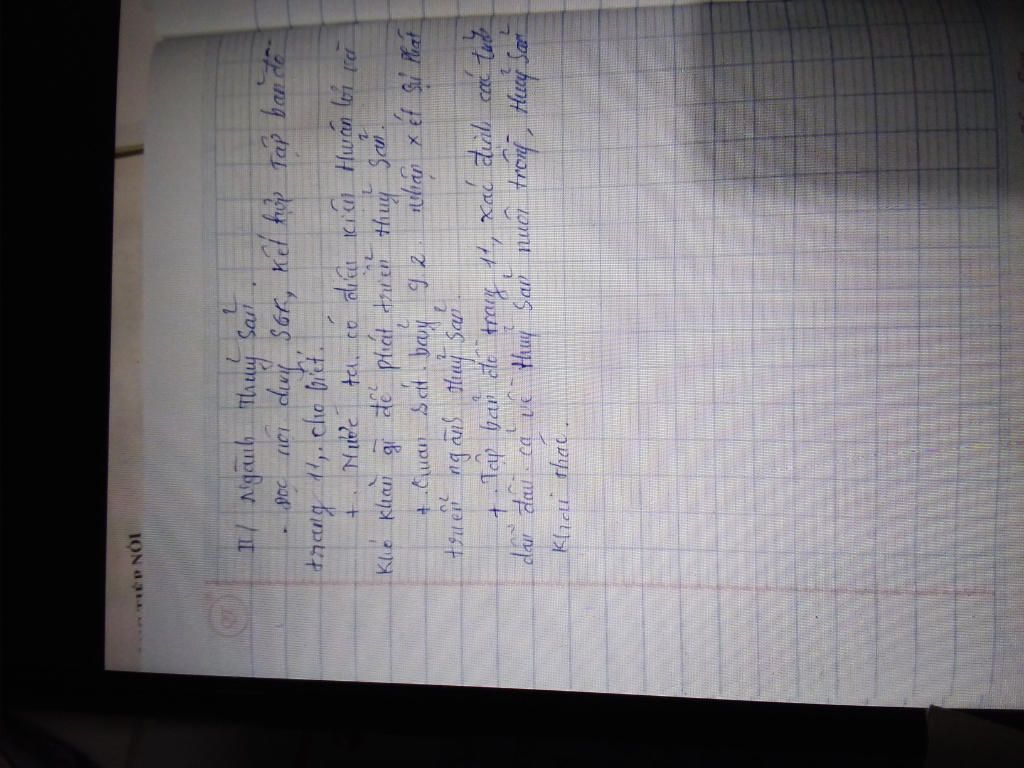 TIẾP NỐI
II/ Ngành Thuỷ Sản.
- Đọc nội dung SGK, kết hợp Tập bản đồ
trang 11, cho biết.
+. Nước ta có điều kiện thuận lợi và
khó khăn gì để phát triển thuỷ sản.
+. Quan sát bảng 9.2. nhận xét sự phát
triển ngành thuỷ sản.
+. Tập bản đồ trang 11, xác định các tỉnh
dẫn đầu cả về thuỷ sản nuôi trồng, thuỷ sản
khai thác.